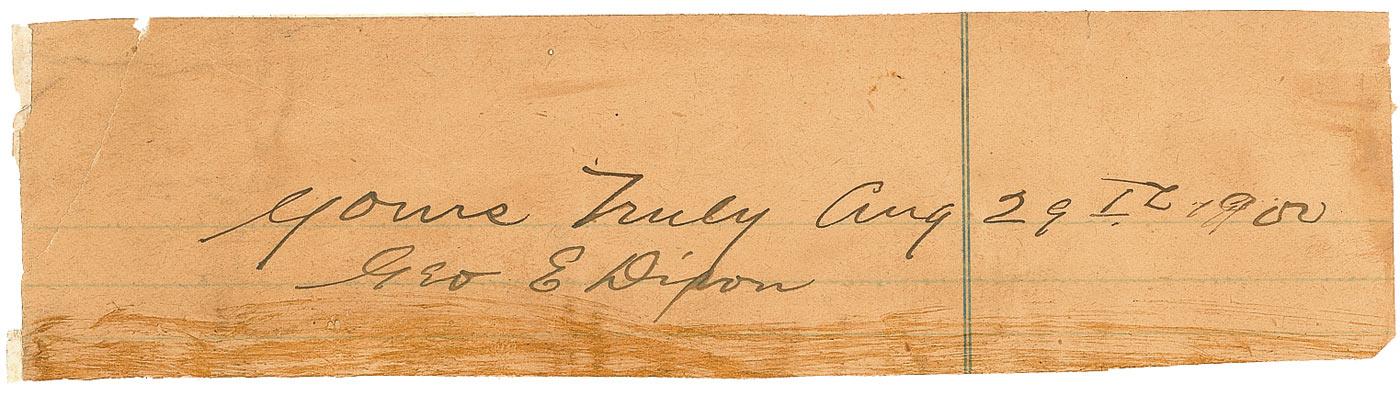 Yours Truly Aug 29th 1900
Geo E Dixon